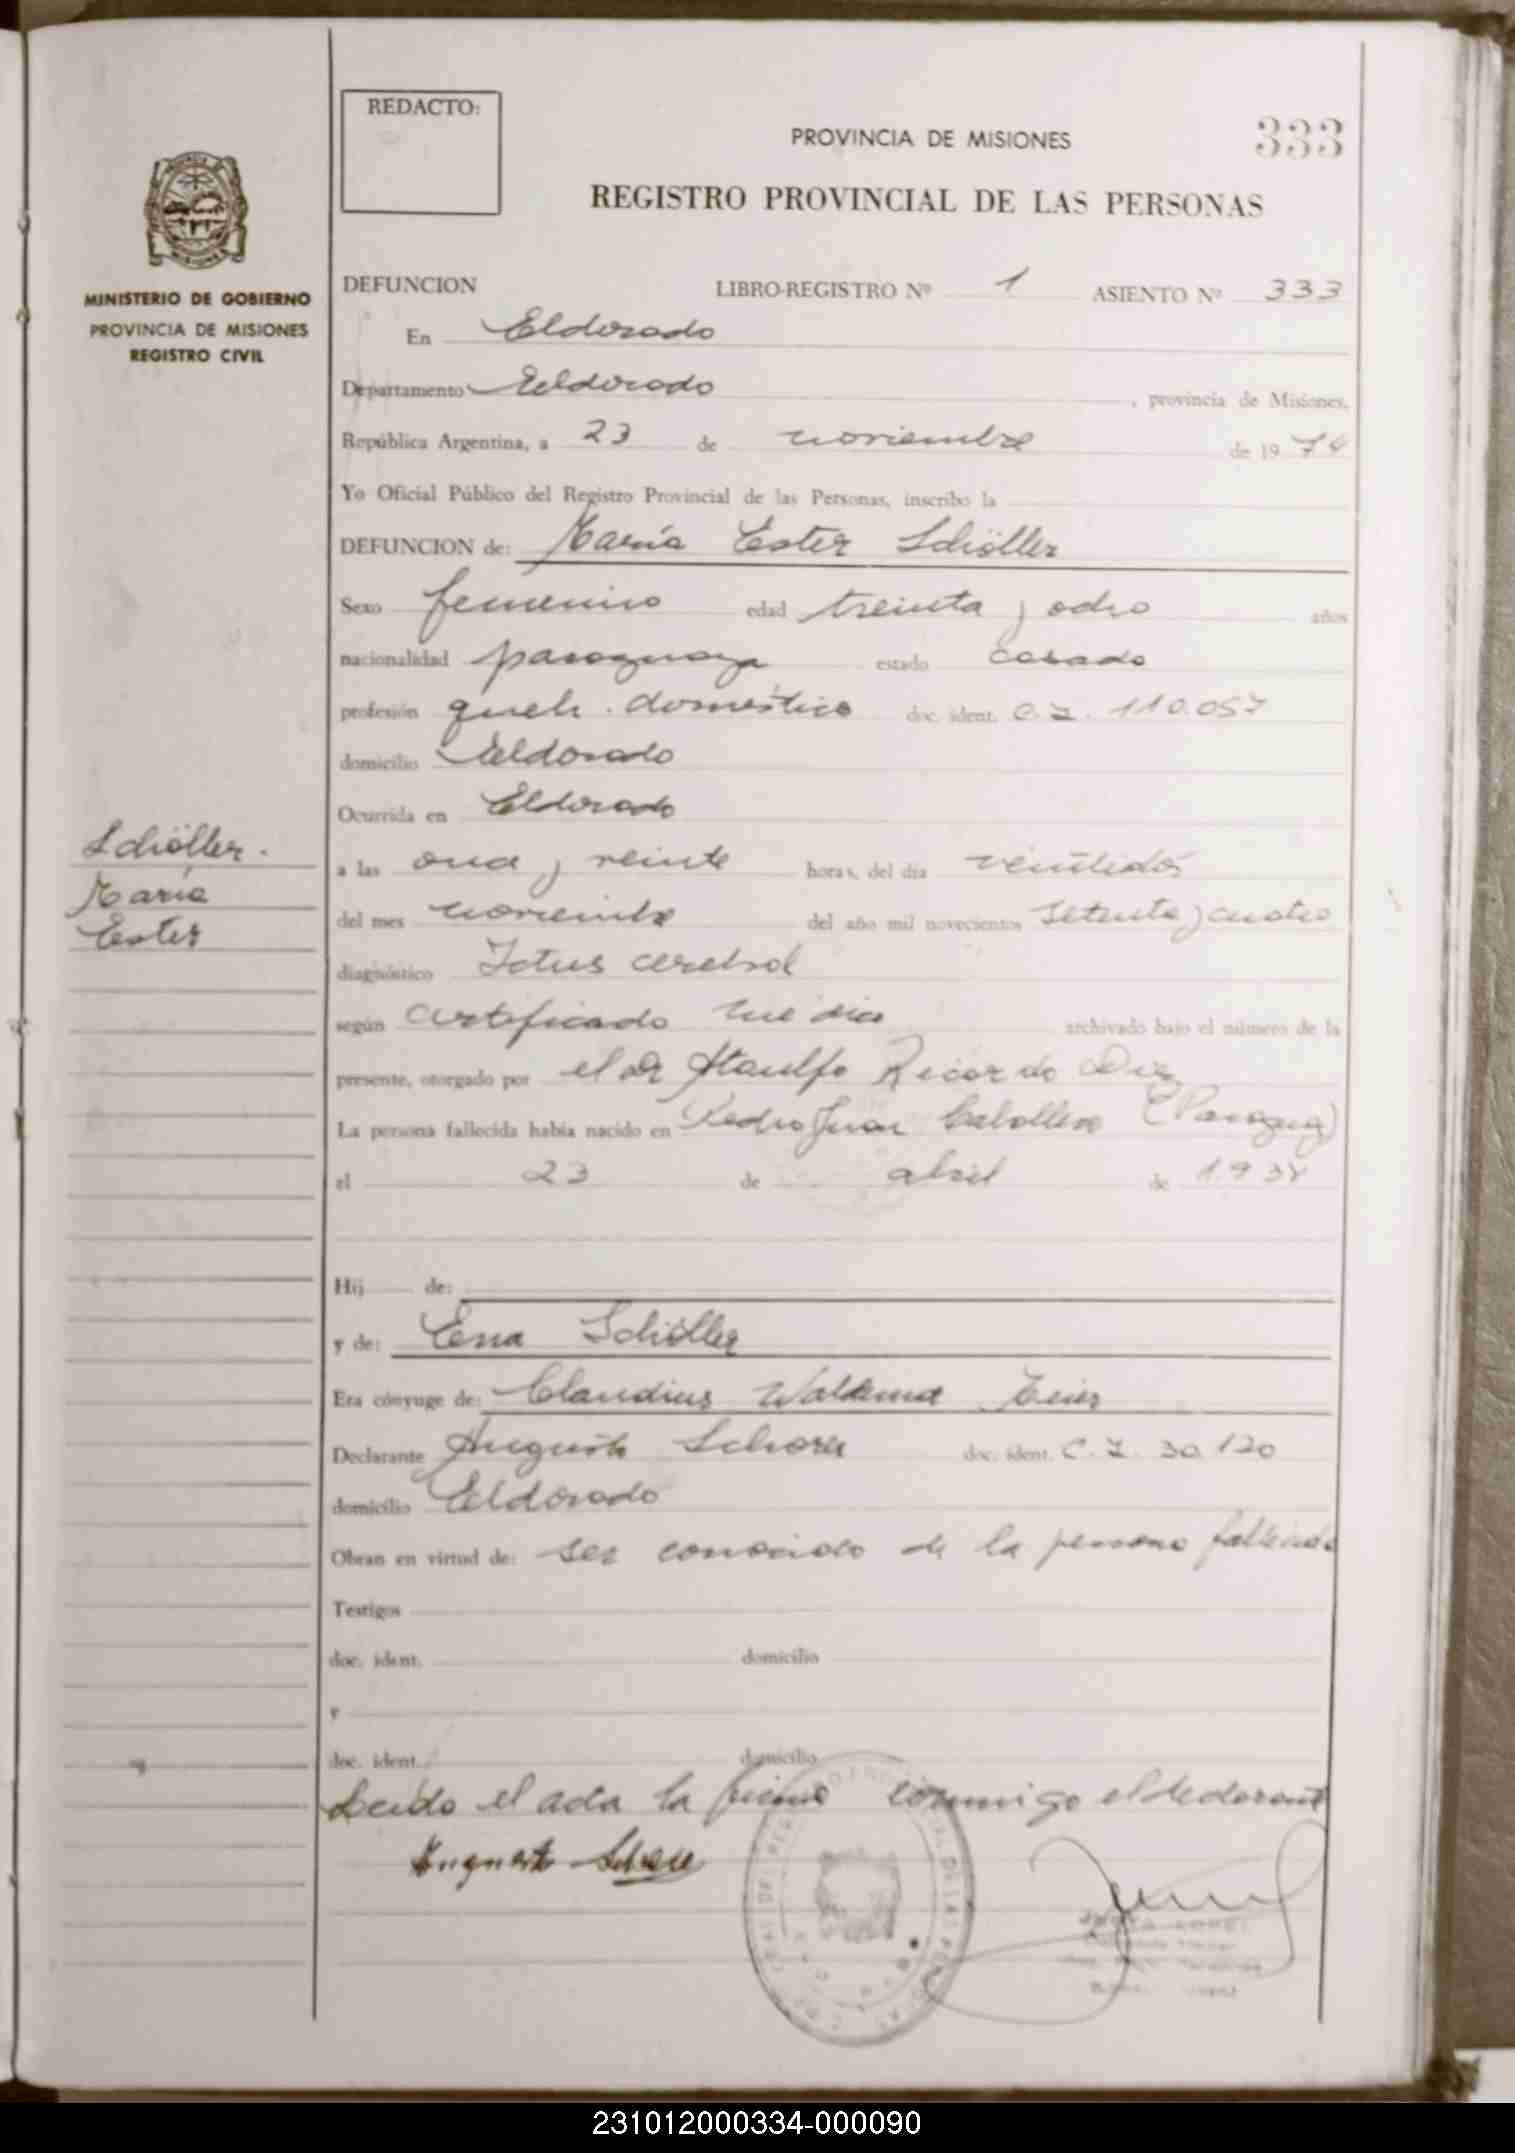 REDACTO:
PROVINCIA DE MISIONES
333
REGISTRO PROVINCIAL DE LAS PERSONAS
MINISTERIO DE GOBIERNO
PROVINCIA DE MISIONES
REGISTRO CIVIL
DEFUNCION LIBRO-REGISTRO Nº 1 ASIENTO Nº 333
En Eldorado
Departamento Eldorado, provincia de Misiones,
República Argentina, a 23 de noviembre de 1974
Yo Oficial Público del Registro Provincial de las Personas, inscribo la
DEFUNCION de: María Ester Schöller
Sexo femenino edad treinta y ocho años
nacionalidad paraguaya estado casada
profesión queh. domésticos doc. ident. C.I. 110.057
domicilio Eldorado
Ocurrida en Eldorado
Schöller
María
Ester
a las una y veinte horas, del día veintidós
del mes noviembre del año mil novecientos setenta y cuatro
diagnóstico Ictus cerebral
según certificado médico archivado bajo el número de la
presente, otorgado por el Dr Ataulfo Ricardo
La persona fallecida había nacido en Pedro Juan Caballero (Paraguay)
el 23 de abril de
Hij de:
y de: Ena Schöller
Era cónyuge de: Claudius Waldemar
Declarante Augusto doc. ident. C.I. 30.120
domicilio Eldorado
Obran en virtud de: ser conocido de la persona fallecida
Testigos
doc. ident. domicilio
y
doc. ident. domicilio
Leído el acta la firma conmigo el declarante
Augusto
LOPEZ
231012000334-000090